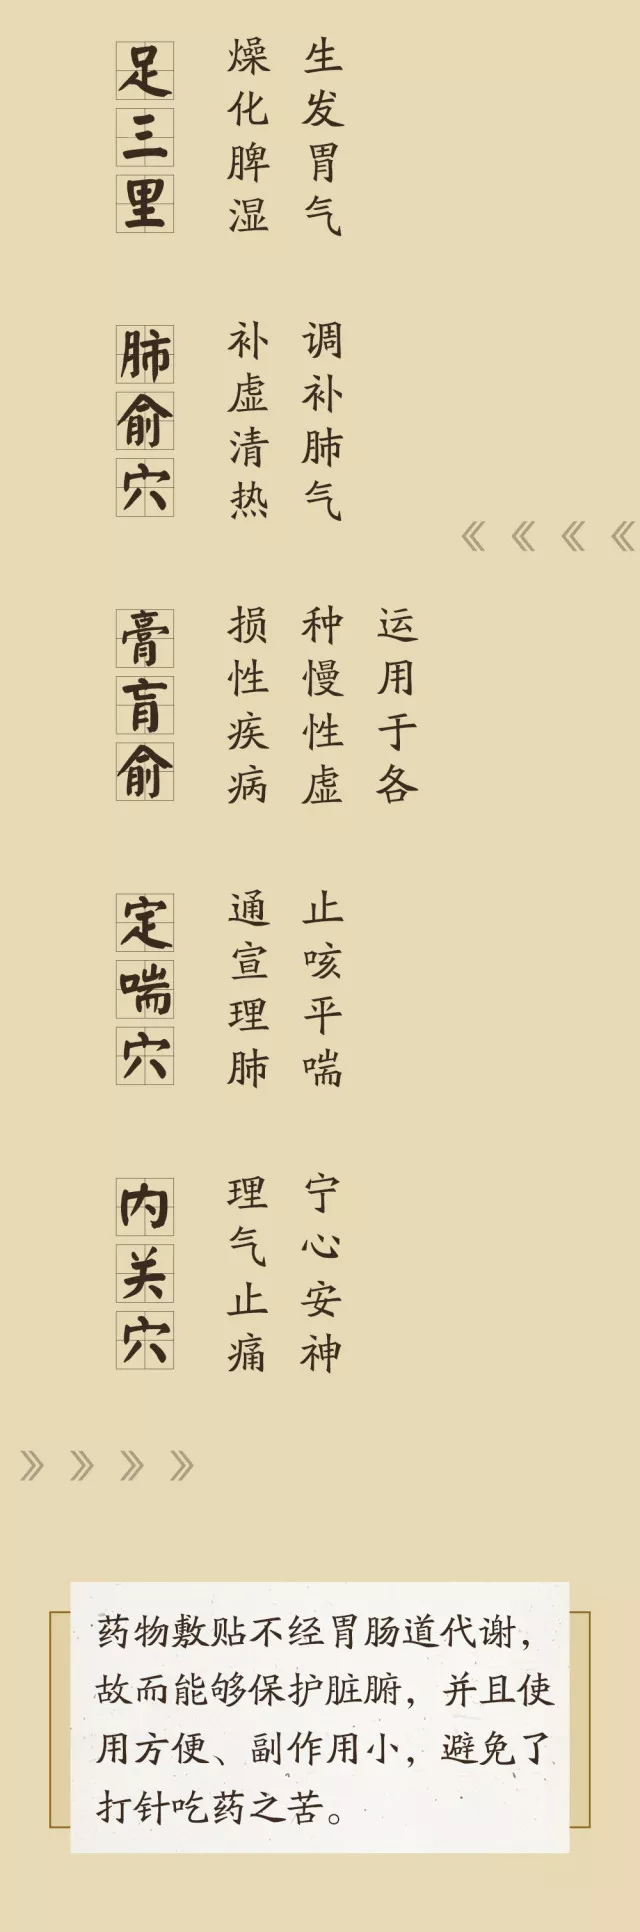 足三里
生发胃气
燥化脾湿
肺俞穴
调补肺气
补虚清热
膏肓俞
运用于各
种慢性虚
损性疾病
定喘穴
止咳平喘
通宣理肺
内关穴
宁心安神
理气止痛
药物敷贴不经胃肠道代谢，
故而能够保护脏腑，并且使
用方便、副作用小，避免了
打针吃药之苦。